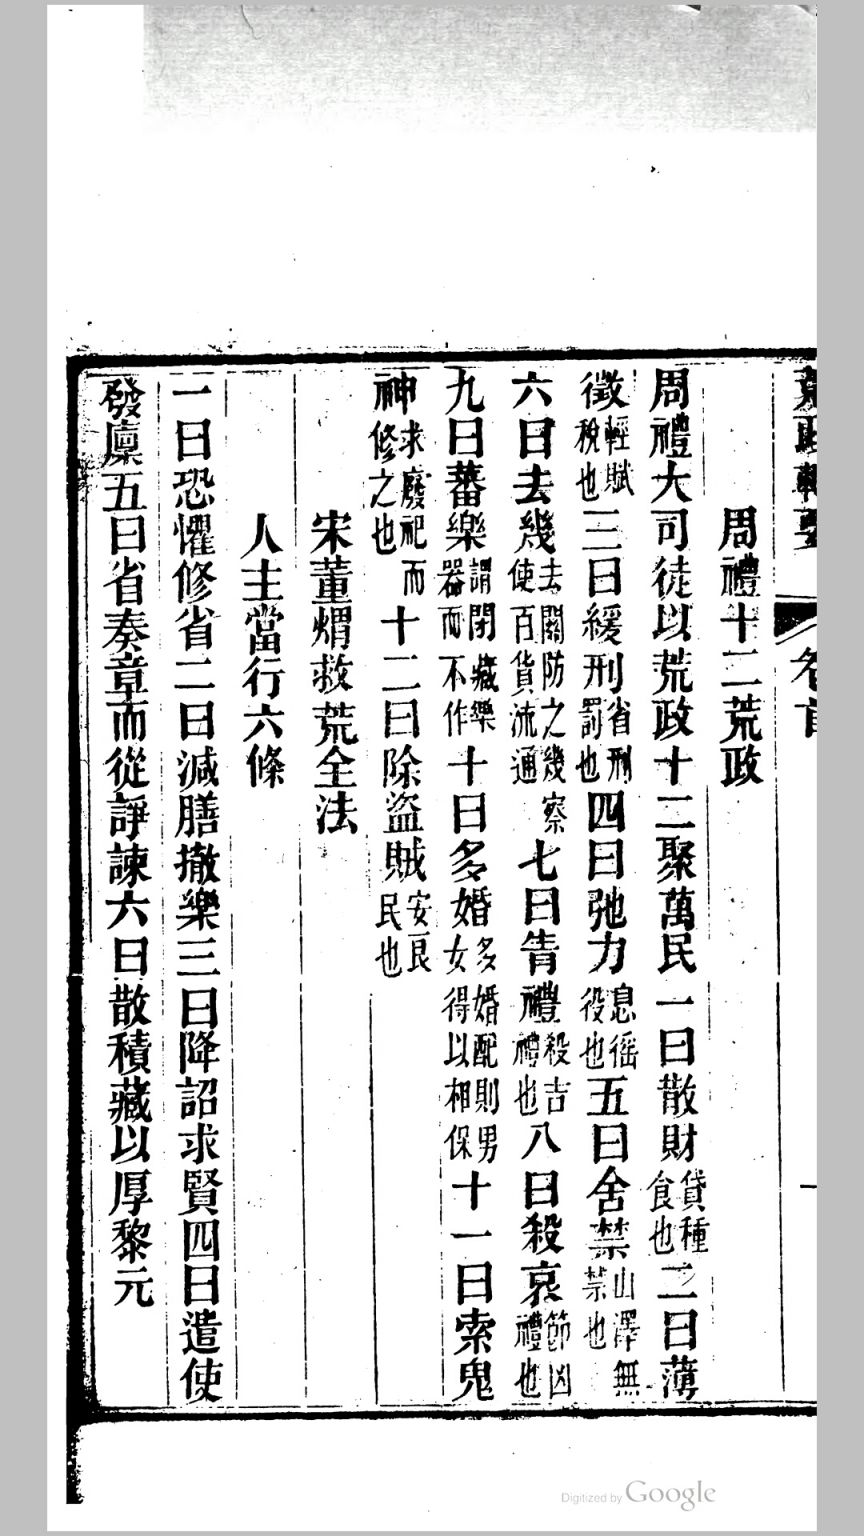 荒政輯要 卷首 一
周禮十二荒政
周禮大司徒以荒政十二聚萬民一曰散財貸種食也二曰薄
徵輕賦稅也三曰緩刑省刑罰也四曰弛力息徭役也五曰舍禁山澤無禁也
六曰去幾去關防之幾察使百貨流通七曰眚禮殺吉禮也八曰殺哀節凶禮也
九曰蕃樂謂閉藏樂器而不作十曰多婚多婚配則男女得以相保十一曰索鬼
神求廢祀而修之也十二曰除盜賊安良民也
宋董煟救荒全法
人主當行六條
一曰恐懼修省二曰減膳撤樂三曰降詔求賢四曰遣使
發廩五曰省奏章而從諍諫六曰散積藏以厚黎元
Digitized by Google